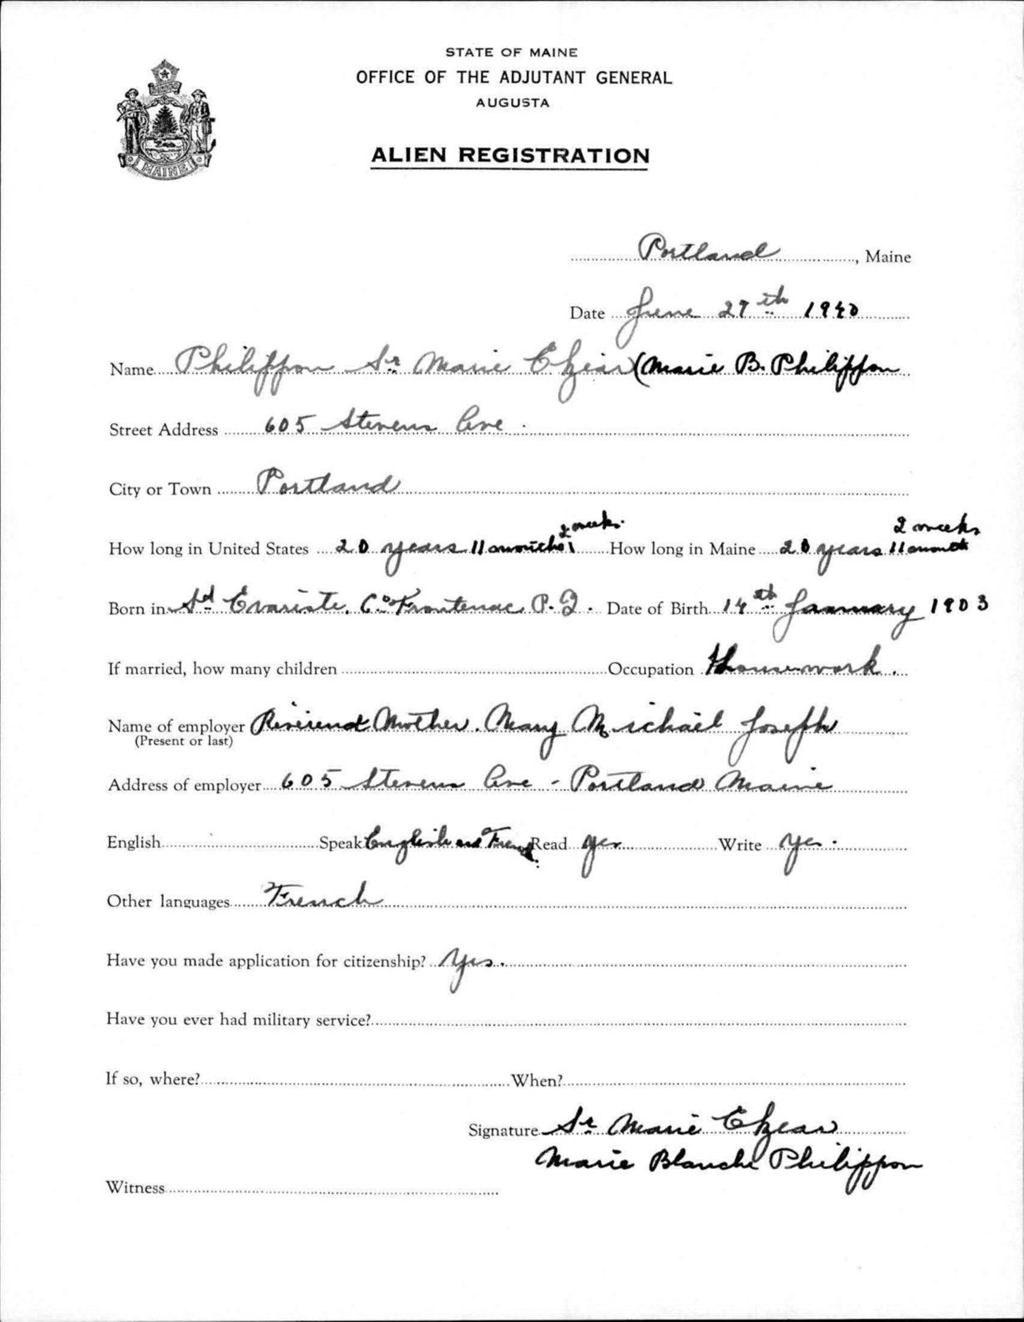 STATE OF MAINE
OFFICE OF THE ADJUTANT GENERAL
AUGUSTA
MAINE
ALIEN REGISTRATION
Portland, Maine
Date June 27th 1940
Name Philippon Sr Marie Elzéar (Marie B. Philippon
Street Address 605 Stevens Ave.
City or Town Portland
2 weeks 2 weeks
How long in United States 20 years 11 months How long in Maine 20 years 11 month
Born in St Evariste, Co Frontenac P.Q. Date of Birth 14th January 1903
If married, how many children Occupation Housework.
Name of employer Reverend Mother. Mary Michael Joseph
(Present or last)
Address of employer 605 Stevens Ave - Portland Maine
English Speak English and French Read yes Write Yes.
Other languages French
Have you made application for citizenship? Yes.
Have you ever had military service?
If so, where? When?
Signature Sr Marie Elzear
Marie Blanche Philippon
Witness